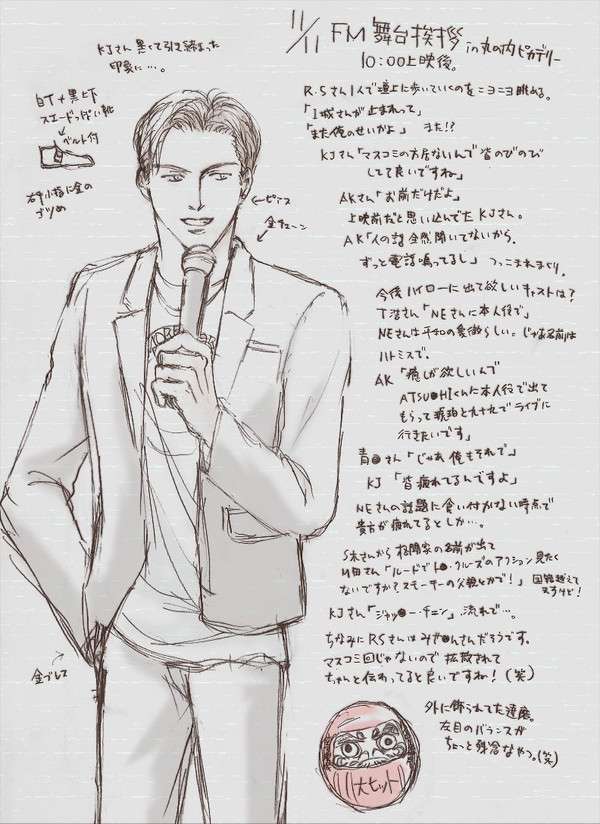 11/11 FM 舞台挨拶 in 丸の内ピカデリー
10:00上映後。
KJさん 黒くて引き締まった
印象に…。
白T+黒上下
スエードっぽい靴
ベルト付
右手小指に金の
ゴツめ
←ピアス
金チェーン
金ブレス
R・Sさん1人で壇上に歩いていくのをニヨニヨ眺める。
「I城さんが止まれって」
「また俺のせいかよ」 また!?
KJさん「マスコミの方居ないんで皆のびのび
してて良いですね」
AKさん「お前だけだよ」
上映前だと思い込んでたKJさん。
AK「人の話全然聞いてないから、
ずっと電話鳴ってるし」 つっこまれまくり。
今後ハイローに出て欲しいキャストは?
T沼さん「NEさんに本人役で」
NEさんは平和の象徴らしい。じゃあ名前は
ハトミスで。
AK「癒しが欲しいんで
ATSU●HIくんに本人役で出て
もらって琥珀と九十九でライブに
行きたいです」
青●さん「じゃあ俺もそれで」
KJ「皆疲れてるんですよ」
NEさんの話題に食い付かない時点で
貴方が疲れてるとしか…。
S木さんから格闘家の名前が出て
M田さん「ルードでト●・クルーズのアクション見たく
ないですか?スモーキーの父親とかで!」 国籍越えて
ますけど!
KJさん「ジャッ●ー・チェン」流れで…。
ちなみにRSさんはみず●んさんだそうです。
マスコミ回じゃないので拡散されて
ちゃんと伝わってると良いですね!(笑)
外に飾られてた達磨。
左目のバランスが
ちょっと残念なやつ。(笑)
大ヒット